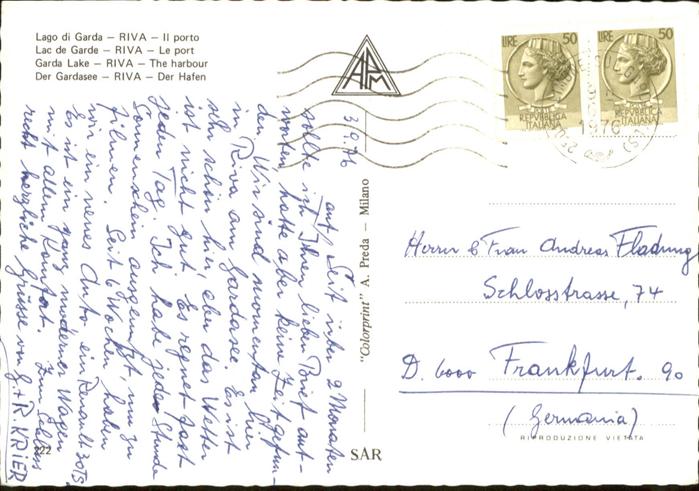 Lago di Garda – RIVA – Il porto
Lac de Garde – RIVA – Le port
Garda Lake – RIVA – The harbour
Der Gardasee – RIVA – Der Hafen
APM
LIRE 50
REPVBBLICA
ITALIANA
LIRE 50
REPVBBLICA
ITALIANA
1976
3/9.76
Seit über 2 Monaten
sollte ich Ihnen lieben Brief ant-
auf
worten, hatte aber keine Zeit gefun-
den. Wir sind momentan hier
in Riva am Gardasee. Es ist
sehr schön hier, aber das Wetter
ist nicht gut. Es regnet fast
jeden Tag. Ich habe jede Stunde
Sonnenschein ausgenützt, um zu
filmen. Seit 6 Wochen haben
wir ein neues Auto, ein Renault 30TS,
Es ist ein ganz moderner Wagen
mit allem Komfort. Zum Schluss
recht herzliche Grüsse von G + R. KRIER
"Colorprint" A. Preda – Milano
Herrn & Frau Andreas Fladung
Schlosstrasse, 74
D. 6000 Frankfurt. 90
(Germania)
RIPRODUZIONE VIETATA
222
SAR